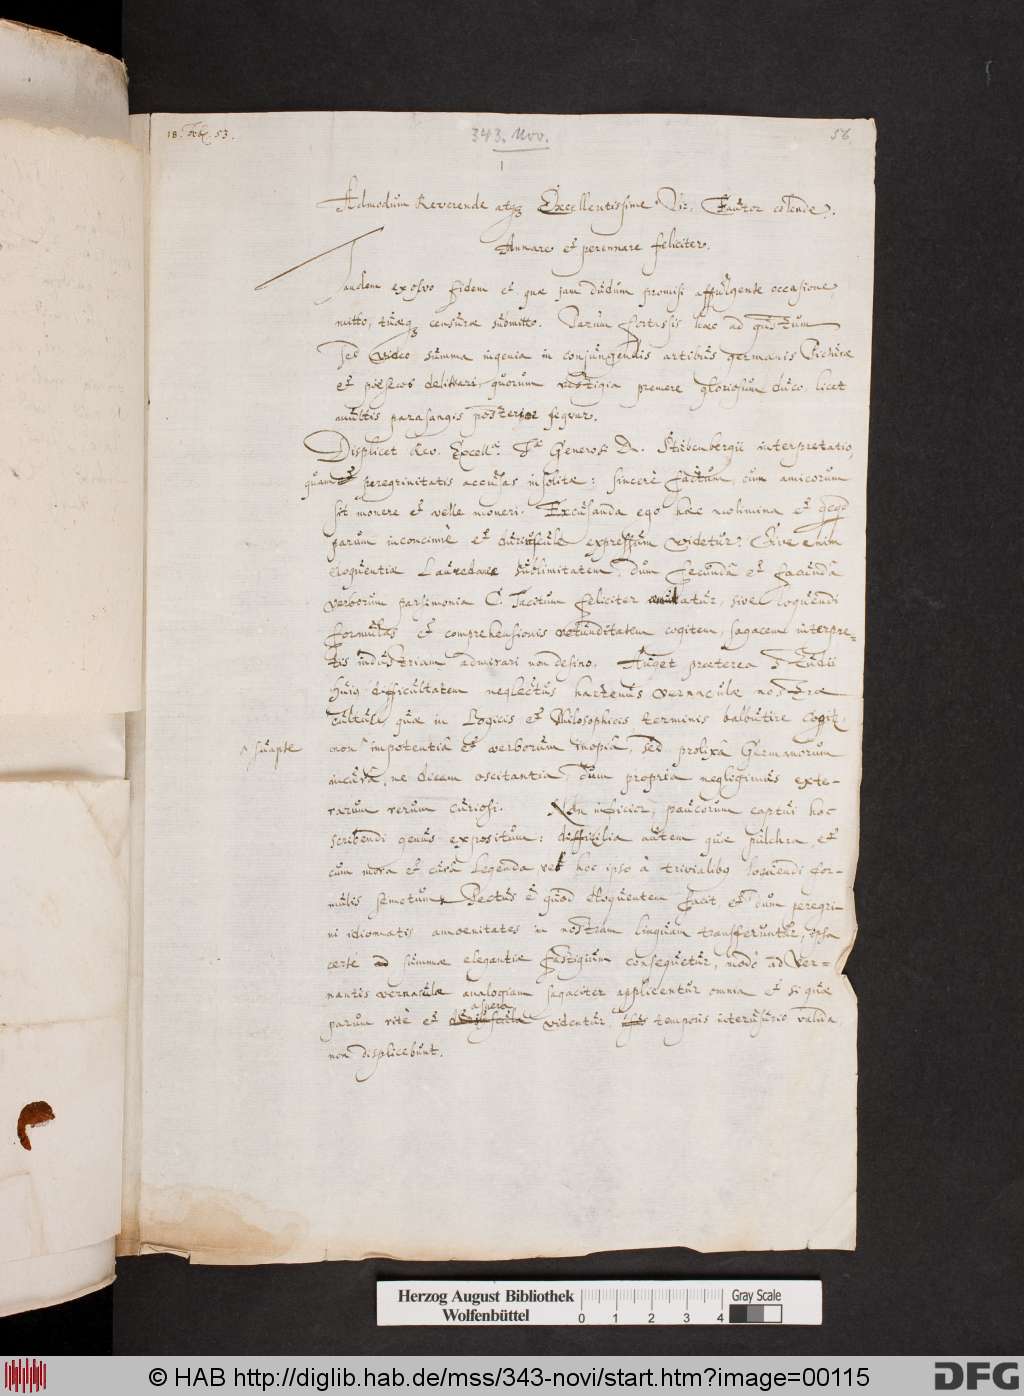 18. Octob. 53.
343. Nov.
56
1
Admodum Reverende atque Excellentissime Vir, Fautor colende.
Annare et perennare feliciter.
Tandem exolvo fidem et quae jam dudum promisi affulgente occasione
mitto, tuaeque censurae submitto. Parum fortassis haec ad gustum
sed video summa ingenia in conjungendis artibus germanis Picturae
et poeseos delibari, quorum vestigia premere gloriosum duco, licet
multis parasangis posterior sequar.
Displicet Rev. Excell.ae T.ae Generosi D. Stubenbergii interpretatio,
quam et peregrinitatis accusas insolitae: sincerè factum, cum amicorum
sit monere et velle moneri. Excusanda ego haec molimina et quicquid
parum inconcinnè et duriuscule expressum videtur. Sive enim
eloquentiae Lauredanae sublimitatem, dum fecundâ et facundâ
verborum parsimonia C. Tacitum feliciter aemulatur, sive loquendi
formulas et comprehensionis rotunditatem cogitem, sagacem interpre-
tis industriam admirari non desino. Auget praeterea studii
hujus difficultatem neglectus hactenus vernaculae nostrae
cultus, quae in Logicis et Philosophicis terminis balbutire cogitur,
^ suapte
non ^ impotentiâ et verborum inopiâ, sed prolixâ Germanorum
incuriâ, ne dicam oscitantia, dum propria negligimus exte-
rarum rerum curiosi. Non inficior, paucorum captui hoc
scribendi genus expositum: difficilia autem quae pulchra, et
cum mora et curâ legenda, vel hoc ipso à trivialibus loquendi for-
mulis semotum. Pectus est quod eloquentem facit, et dum peregri-
ni idiomatis amoenitates in nostram linguam transferuntur, ipsa
certè ad summae elegantiae fastigium consequetur, modò ad ver-
nantis vernaculae analogiam sagaciter applicentur omnia et si quae
aspera
parum ritè et duriuscula videntur, temporis interusurio valida
non displicebunt.
Herzog August Bibliothek
Wolfenbüttel
0 1 2 3 4
Gray Scale
© HAB http://diglib.hab.de/mss/343-novi/start.htm?image=00115
DFG